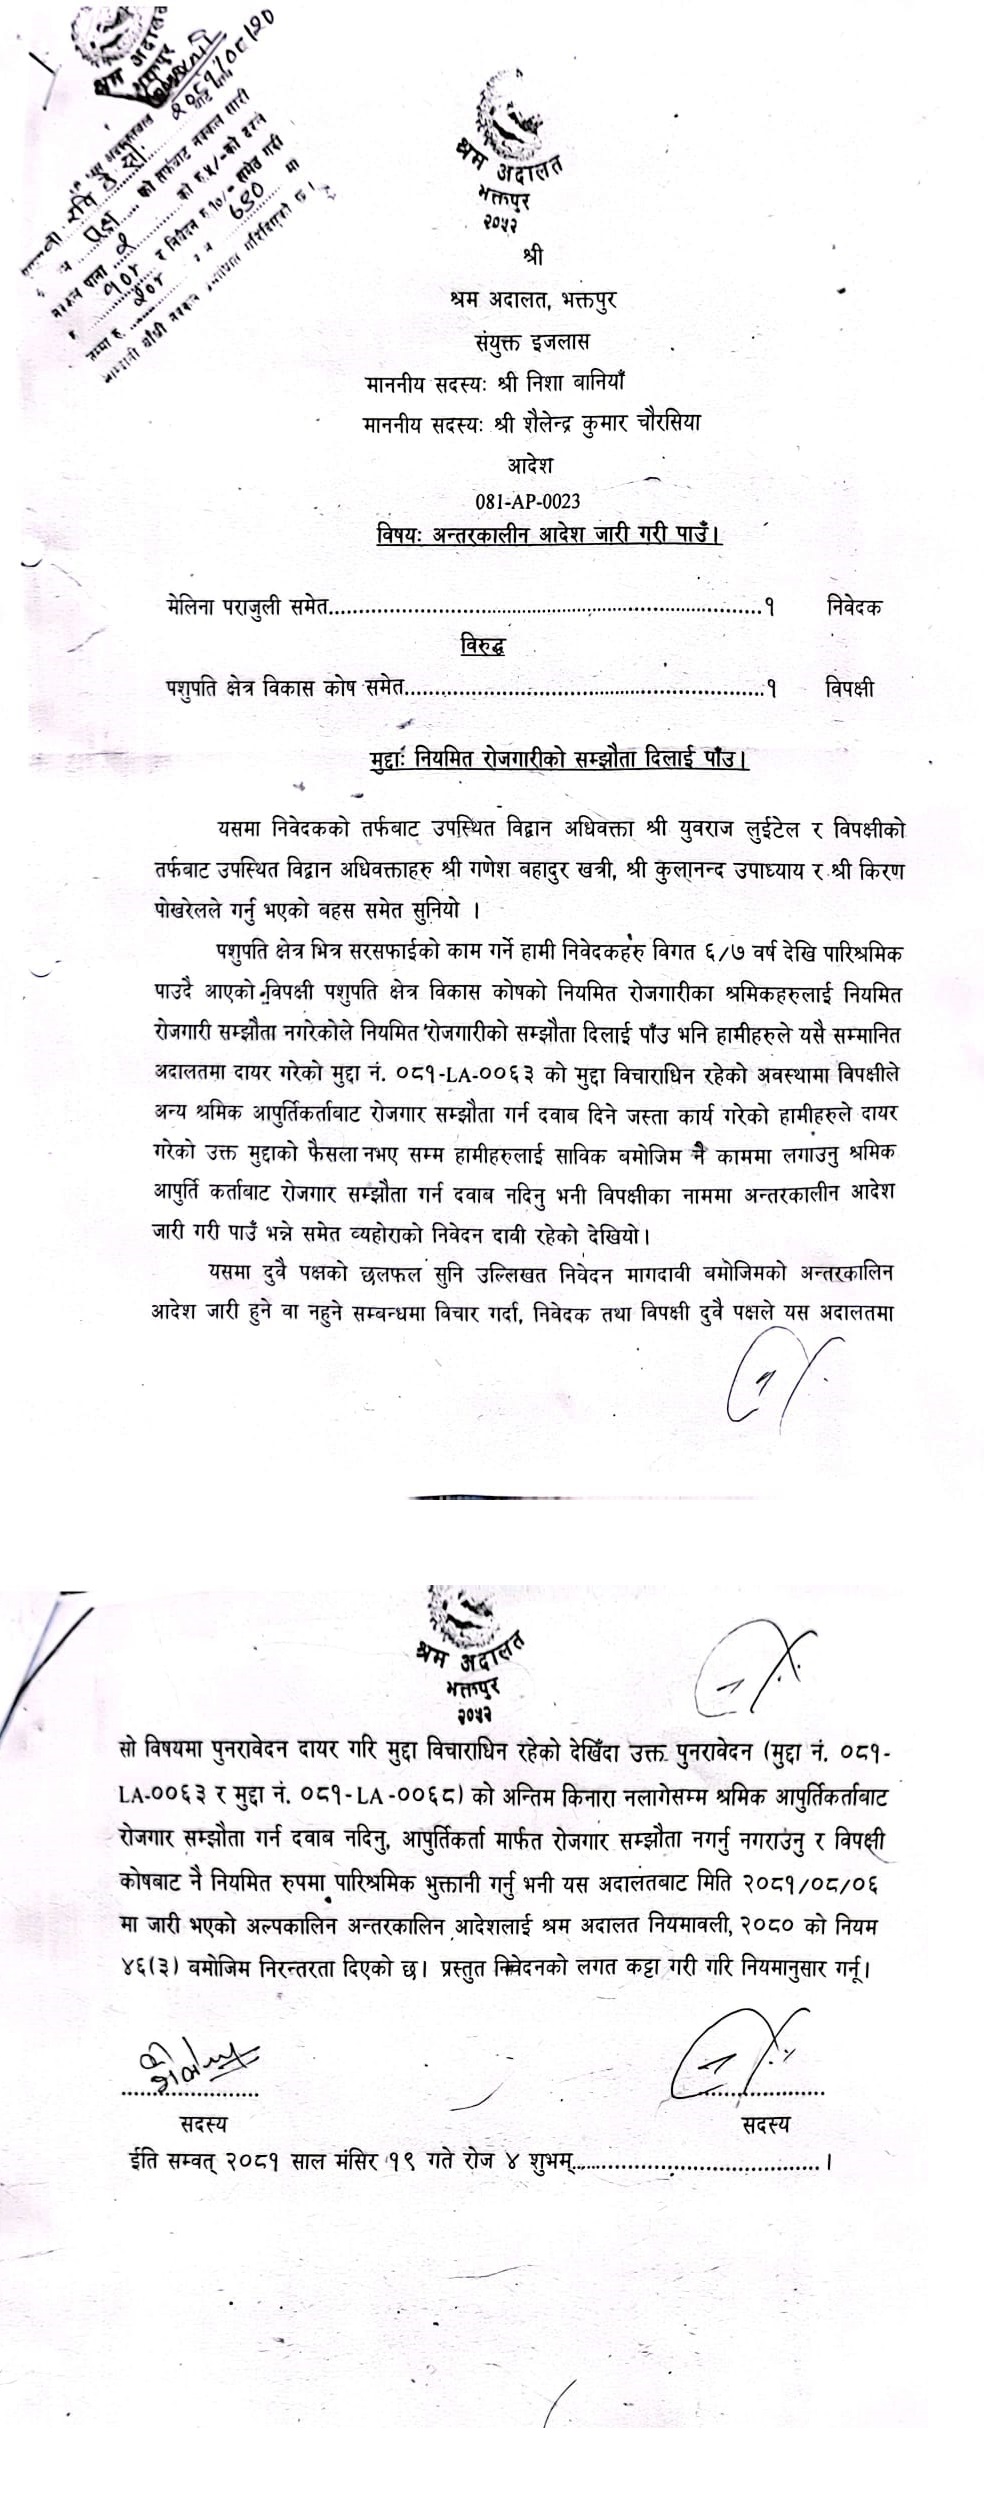 श्रम अदालत
भक्तपुर
२०८१/०८/२०
पक्ष ..... को तर्फबाट नक्कल सारी
नक्कल पाना २ को रु.५/-को दरले
रु. १०/- र निवेदन रु १०/- समेत गरी
जम्मा रु. २०/- ६९० मा
श्रम अदालत
भक्तपुर
२०५२
श्री
श्रम अदालत, भक्तपुर
संयुक्त इजलास
माननीय सदस्यः श्री निशा बानियाँ
माननीय सदस्यः श्री शैलेन्द्र कुमार चौरसिया
आदेश
081-AP-0023
विषयः अन्तरकालीन आदेश जारी गरी पाउँ।
मेलिना पराजुली समेत..........................................................................१ निवेदक
विरुद्ध
पशुपति क्षेत्र विकास कोष समेत.............................................................१ विपक्षी
मुद्दाः नियमित रोजगारीको सम्झौता दिलाई पाँउ।
यसमा निवेदकको तर्फबाट उपस्थित विद्वान अधिवक्ता श्री युवराज लुईटेल र विपक्षीको
तर्फबाट उपस्थित विद्वान अधिवक्ताहरु श्री गणेश बहादुर खत्री, श्री कुलानन्द उपाध्याय र श्री किरण
पोखरेलले गर्नु भएको वहस समेत सुनियो ।
पशुपति क्षेत्र भित्र सरसफाईको काम गर्ने हामी निवेदकहरु विगत ६/७ वर्ष देखि पारिश्रमिक
पाउदै आएको विपक्षी पशुपति क्षेत्र विकास कोषको नियमित रोजगारीका श्रमिकहरुलाई नियमित
रोजगारी सम्झौता नगरेकोले नियमित रोजगारीको सम्झौता दिलाई पाँउ भनि हामीहरुले यसै सम्मानित
अदालतमा दायर गरेको मुद्दा नं. ०८१-LA-००६३ को मुद्दा विचाराधिन रहेको अवस्थामा विपक्षीले
अन्य श्रमिक आपुर्तिकर्ताबाट रोजगार सम्झौता गर्न दवाब दिने जस्ता कार्य गरेको हामीहरुले दायर
गरेको उक्त मुद्दाको फैसला नभए सम्म हामीहरुलाई साविक बमोजिम नै काममा लगाउनु श्रमिक
आपुर्ति कर्ताबाट रोजगार सम्झौता गर्न दवाब नदिनु भनी विपक्षीका नाममा अन्तरकालीन आदेश
जारी गरी पाउँ भन्ने समेत व्यहोराको निवेदन दावी रहेको देखियो।
यसमा दुवै पक्षको छलफल सुनि उल्लिखत निवेदन मागदावी बमोजिमको अन्तरकालिन
आदेश जारी हुने वा नहुने सम्बन्धमा विचार गर्दा, निवेदक तथा विपक्षी दुवै पक्षले यस अदालतमा
श्रम अदालत
भक्तपुर
२०५२
सो विषयमा पुनरावेदन दायर गरि मुद्दा विचाराधिन रहेको देखिँदा उक्त पुनरावेदन (मुद्दा नं. ०८१-
LA-००६३ र मुद्दा नं. ०८१-LA-००६८) को अन्तिम किनारा नलागेसम्म श्रमिक आपुर्तिकर्ताबाट
रोजगार सम्झौता गर्न दवाब नदिनु, आपुर्तिकर्ता मार्फत रोजगार सम्झौता नगर्नु नगराउनु र विपक्षी
कोषबाट नै नियमित रुपमा पारिश्रमिक भुक्तानी गर्नु भनी यस अदालतबाट मिति २०८१/०८/०६
मा जारी भएको अल्पकालिन अन्तरकालिन आदेशलाई श्रम अदालत नियमावली, २०८० को नियम
४६(३) बमोजिम निरन्तरता दिएको छ। प्रस्तुत निवेदनको लगत कट्टा गरी गरि नियमानुसार गर्नू।
सदस्य सदस्य
ईति सम्वत् २०८१ साल मंसिर १९ गते रोज ४ शुभम्...........................................।